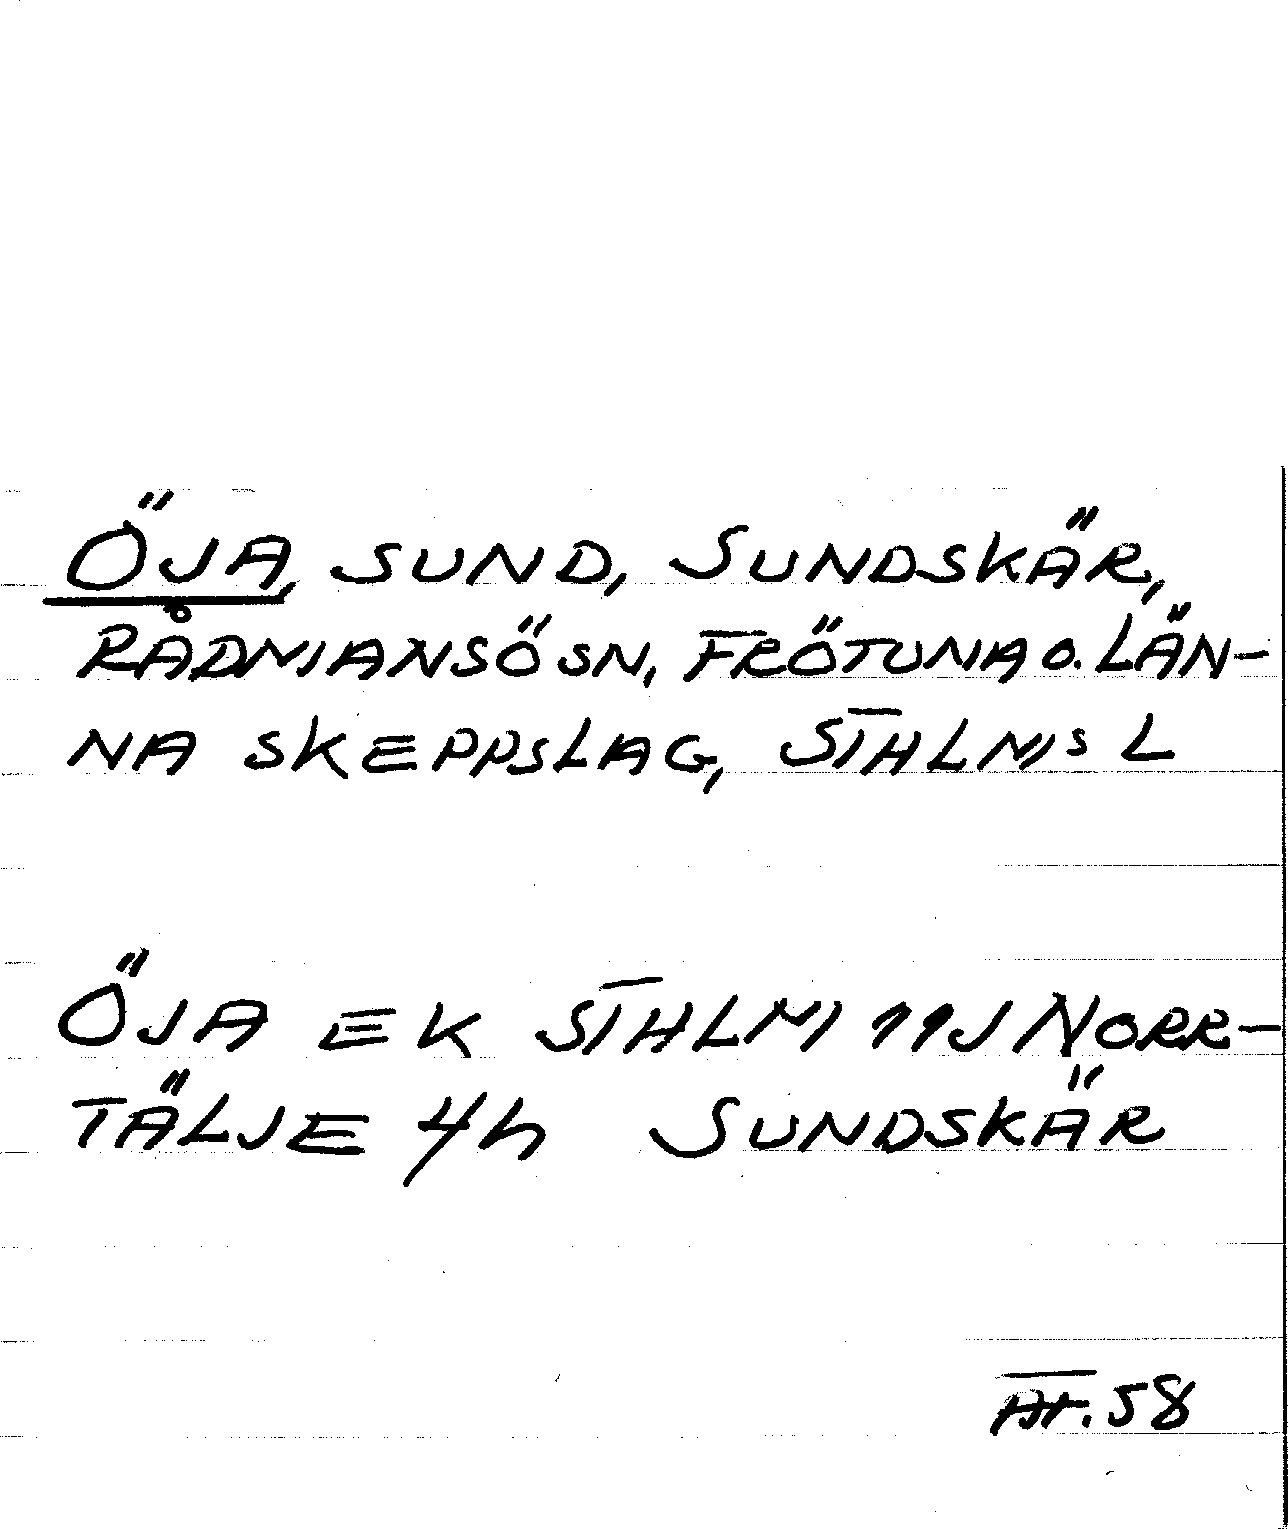 ÖJA, SUND, SUNDSKÄR,
RÅDMANSÖ SN, FRÖTUNA O. LÄN-
NA SKEPPSLAG, STHLMS L
ÖJA EK STHLM 11J NORR-
TÄLJE 4h SUNDSKÄR
58